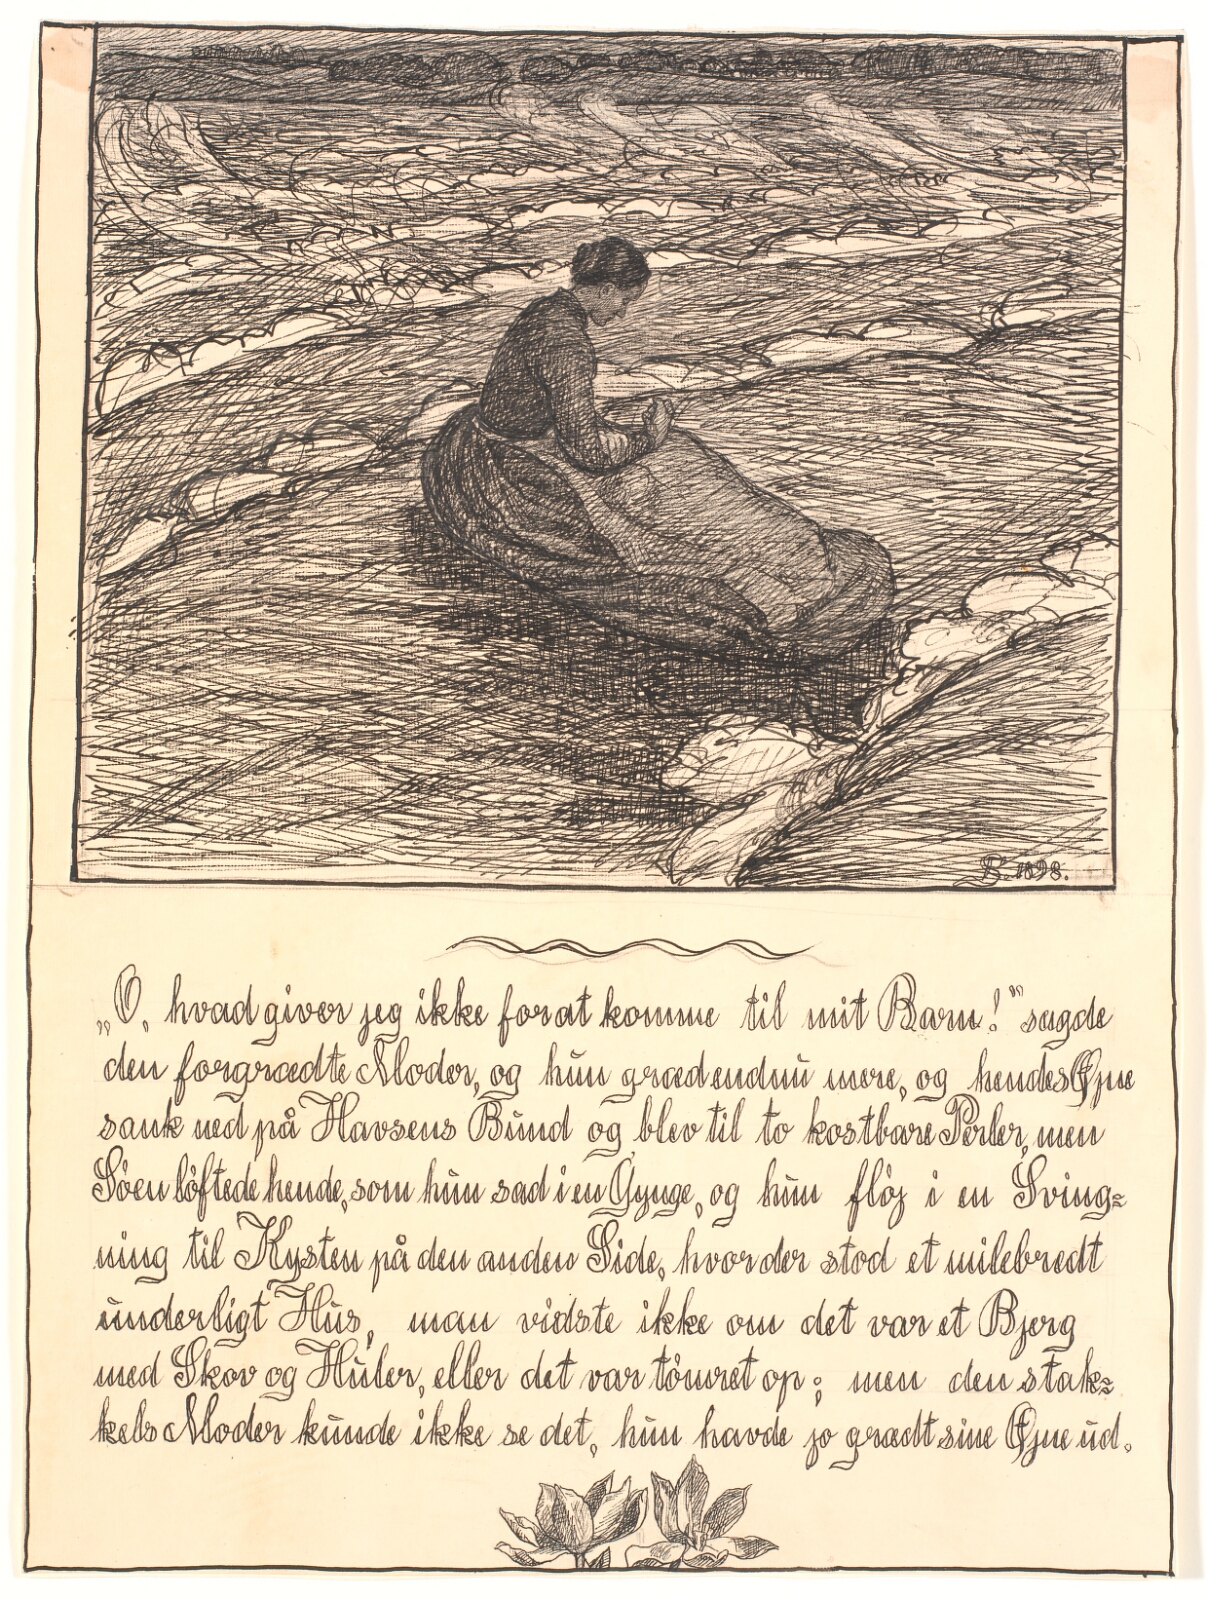 B. 1898.
„O, hvad giver jeg ikke for at komme til mit Barn!” sagde
den forgrædte Moder, og hun græd endnu mere, og hendes Øjne
sank ned på Havsens Bund og blev til to kostbare Perler, men
Søen løftede hende, som hun sad i en Gynge, og hun fløj i en Sving=
ning til Kysten på den anden Side, hvor der stod et milebredt
underligt Hus, man vidste ikke om det var et Bjerg
med Skov og Huler, eller det var tømret op; men den stak=
kels Moder kunde ikke se det, hun havde jo grædt sine Øjne ud.